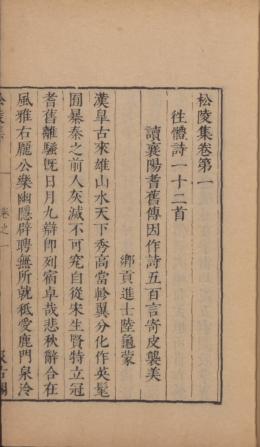 松陵集卷第一
往體詩一十二首
讀襄陽耆舊傳因作詩五百言寄皮襲美
鄉貢進士陸龜蒙
漢臯古來雄山水天下秀高當軫翼分化作英髦
囿暴秦之前人灰滅不可究自從宋生賢特立冠
耆舊離騷旣日月九辯即列宿卓哉悲秋辭合在
風雅右龐公樂幽隱辟聘無所就秪愛鹿門泉泠
卷之一